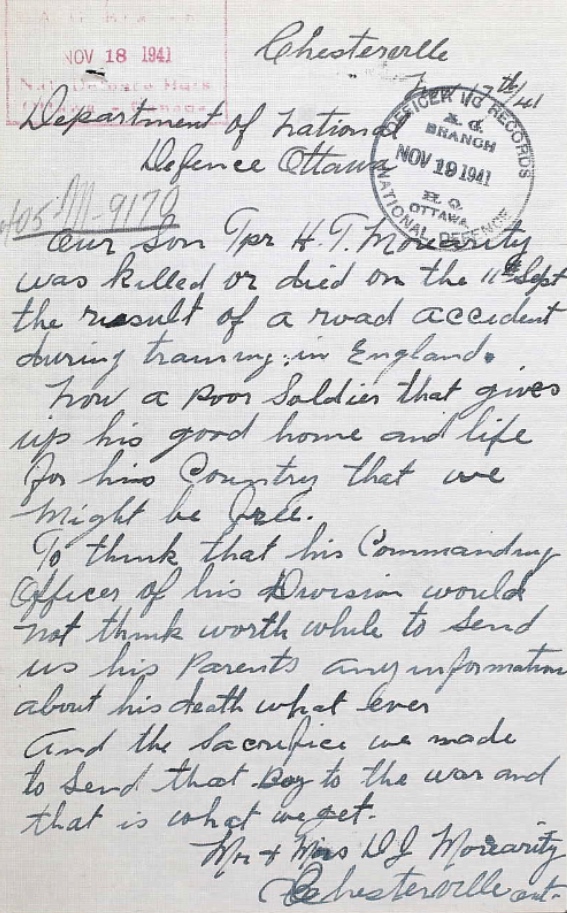 NOV 18 1941
Nat. Defence Hqrs
Ottawa - Canada
Chesterville
Nov 17th/41
OFFICER I/C RECORDS
A. G.
BRANCH
NOV 19 1941
H. Q.
OTTAWA
NATIONAL DEFENCE
Department of National
Defence Ottawa
405-M-9170
Our Son Tpr H. T. Morearity
was killed or died on the 11th Sept
the result of a road accident
during training in England.
Now a poor Soldier that gives
up his good home and life
for his Country that we
might be free.
To think that his Commanding
Officer of his Division would
not think worth while to send
us his Parents any information
about his death what ever
And the Sacrifice we made
to send that Boy to the war and
that is what we get.
Mr + Mrs D J Morearity
Chesterville ont-